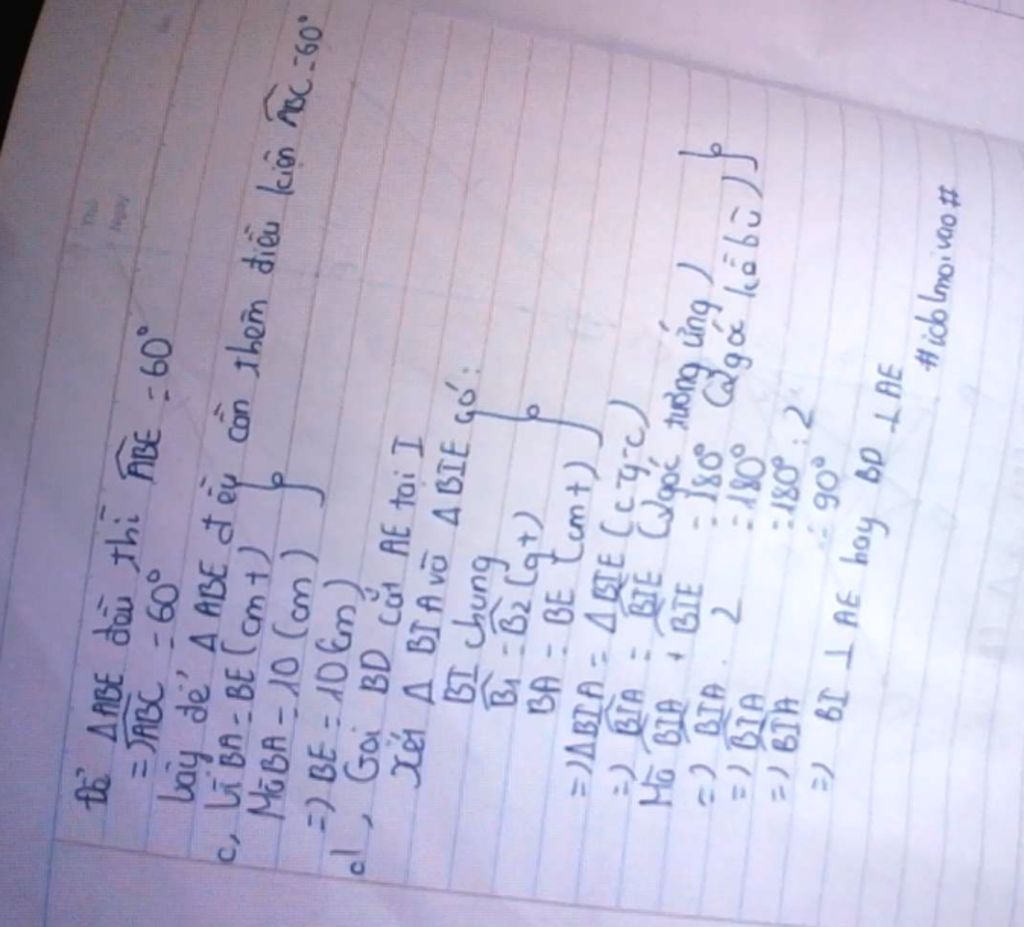 Để ΔABE đều thì ABE = 60°
=) ABC = 60°
Vậy để ΔABE đều cần thêm điều kiện ABC = 60°
c, Vì BA = BE (cmt)
Mà BA = 10 (cm)
=) BE = 10 (cm)
d, Gọi BD cắt AE tại I
Xét Δ BIA và Δ BIE có:
BI chung
B1 = B2 (gt)
BA = BE (cmt)
=) ΔBIA = ΔBIE (c-g-c)
=) BIA = BIE (2 góc tương ứng)
Mà BIA + BIE = 180° (2 góc kề bù)
=) BIA . 2 = 180°
=) BIA = 180° : 2
=) BIA = 90°
=) BI ⊥ AE hay BD ⊥ AE
#idolmoivao#